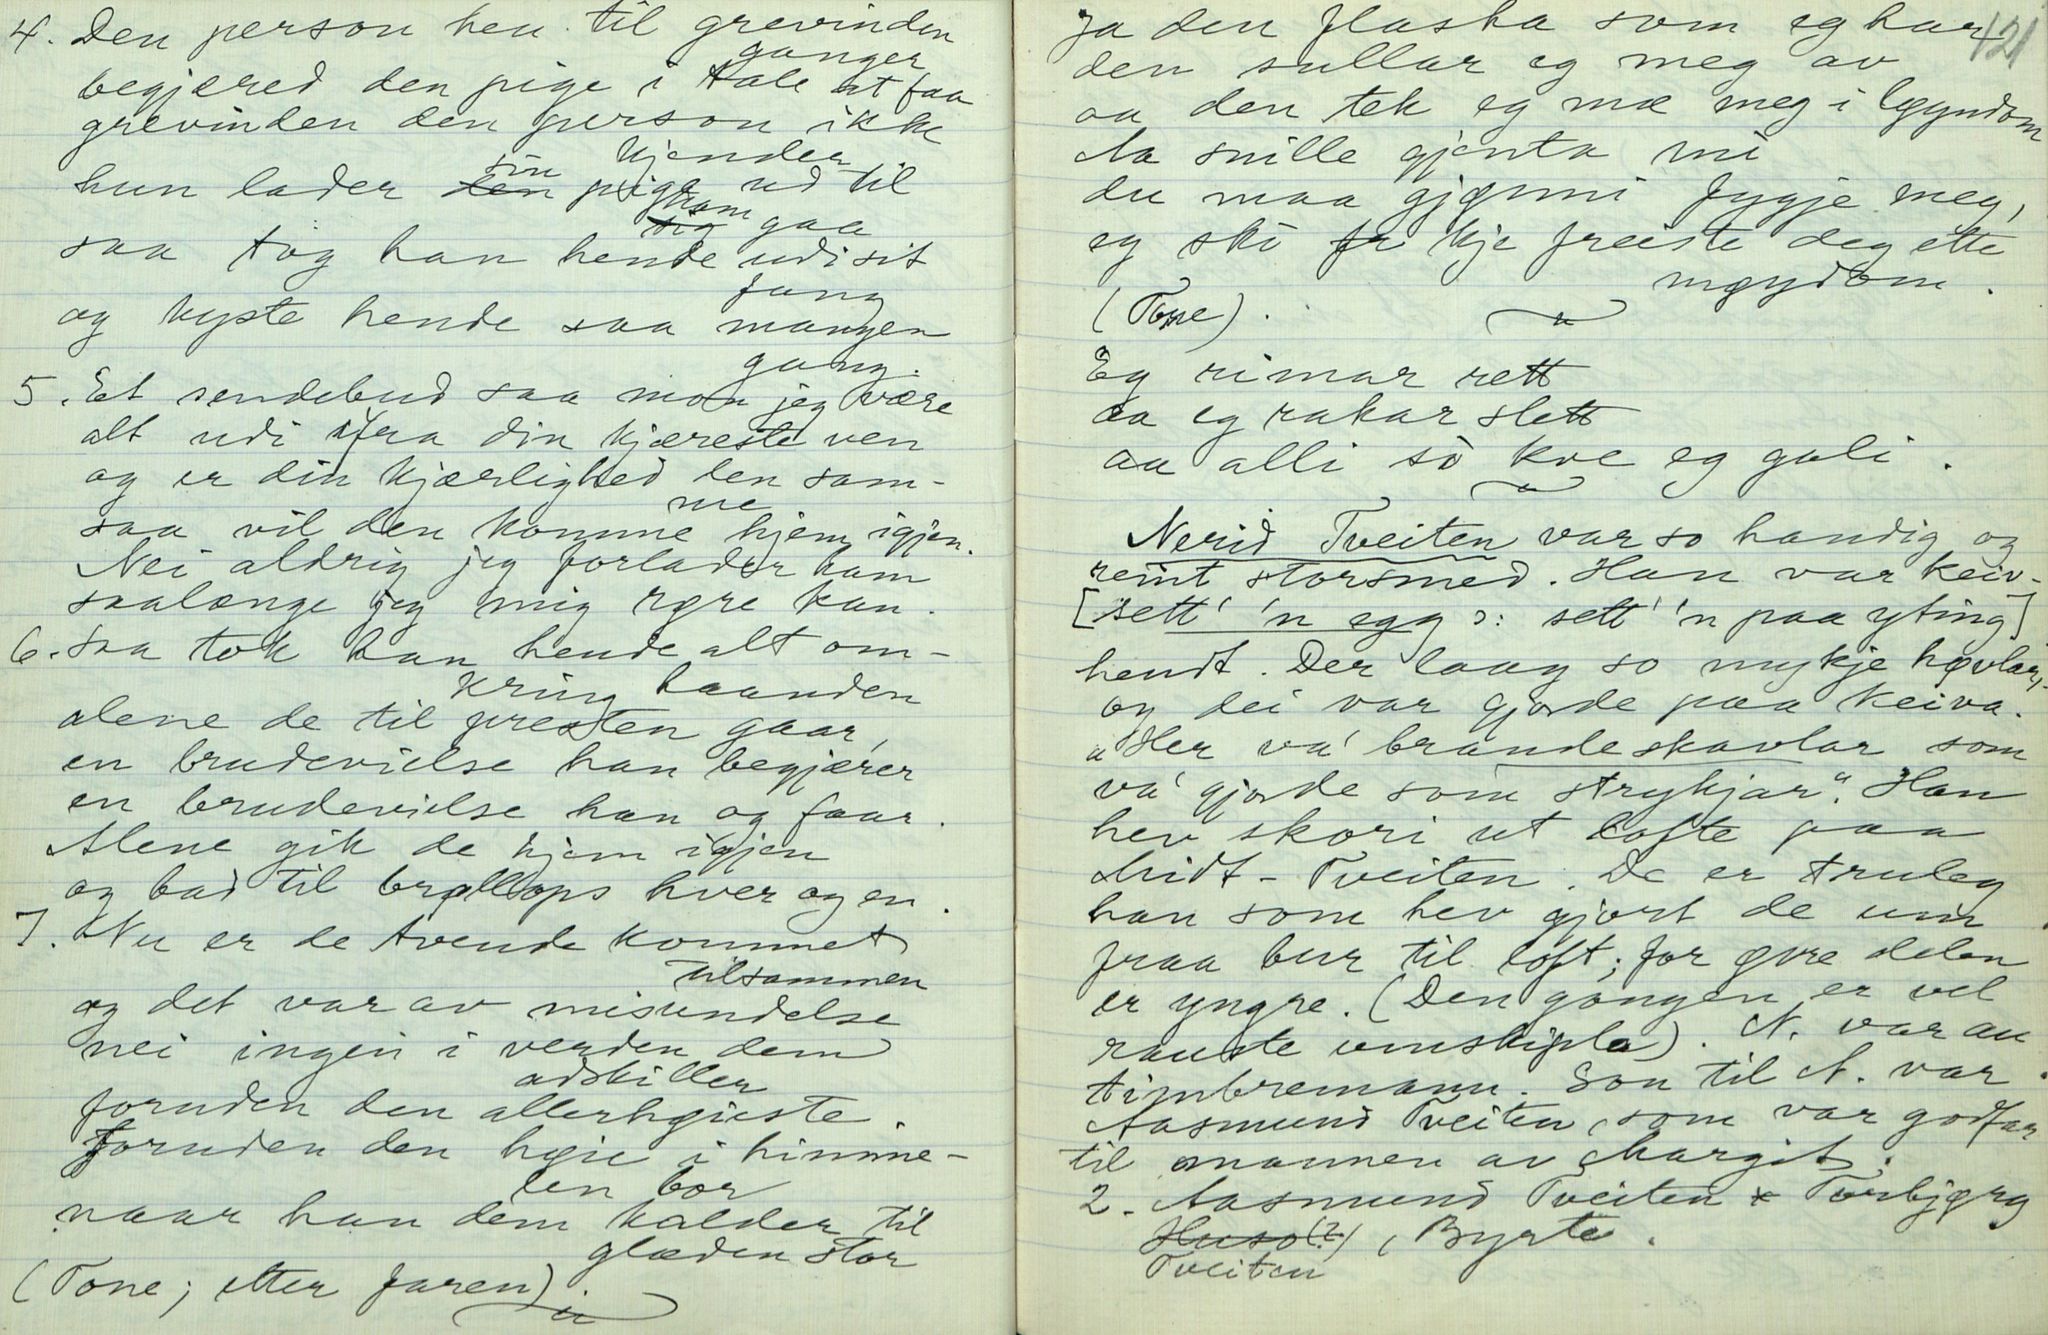 4. Den person hen til grevinden
ganger
begjæred den pige i tale at faa
grevinden den person ikke
kjender
hun lader den sin pige ud til
ham gaa
saa tog han hende udi sit
fang
og kyste hende saa mangen
gang.
5. Et sendebud saa mon jeg være
alt udi ifra din kjæreste ven
og er din kjærlighed den sam-
me
saa vil den komme hjem igjen.
Nei aldrig jeg forlader ham
saalænge jeg mig røre kan.
6. Saa tok han hende alt om-
kring haanden
alene de til presten gaar,
en brudevielse han begjærer
en brudevielse han og faar.
Alene gik de hjem igjen
og bad til brøllops hver og en.
7. Nu er de tvende kommet
tilsammen
og det var av misundelse
nei ingen i verden dem
adskiller
foruden den allerhøieste.
Foruden den høie i himme-
len bor
naar han dem kalder til
glæden stor
(Tone; etter faren).
121
Ja den flaska som eg har
den sullar eg meg av
aa den tek eg mæ meg i løyndom
Aa snille gjenta mi
du maa gjønni fygje meg,
eg ski kje freiste deg ette
møydom.
(Tone).
Eg rimar rett
aa eg rakar slett
aa alli so kve eg gali.
Nerid Tveiten var so handig og
reint storsmed. Han var keiv-
[sett' 'n egg ɔ: sett' 'n paa yting]
hendt. Der laag so mykje høvlar,
og dei var gjorde paa keiva.
"Her va' brandeskavlar som
va' gjorde som strykjar". Han
hev skori ut lofte paa
Midt-Tveiten. De er truleg
han som hev gjort de um
fraa bur til loft; for øvre delen
er yngre. (Den gongen er vel
rauste umskipla). N. var au
timbremann. Son til N. var
Aasmund Tveiten, som var godfar
til mannen av Margit.
2. Aasmund Tveiten × Torbjørg
Huso(?), Byrte.
Tveiten